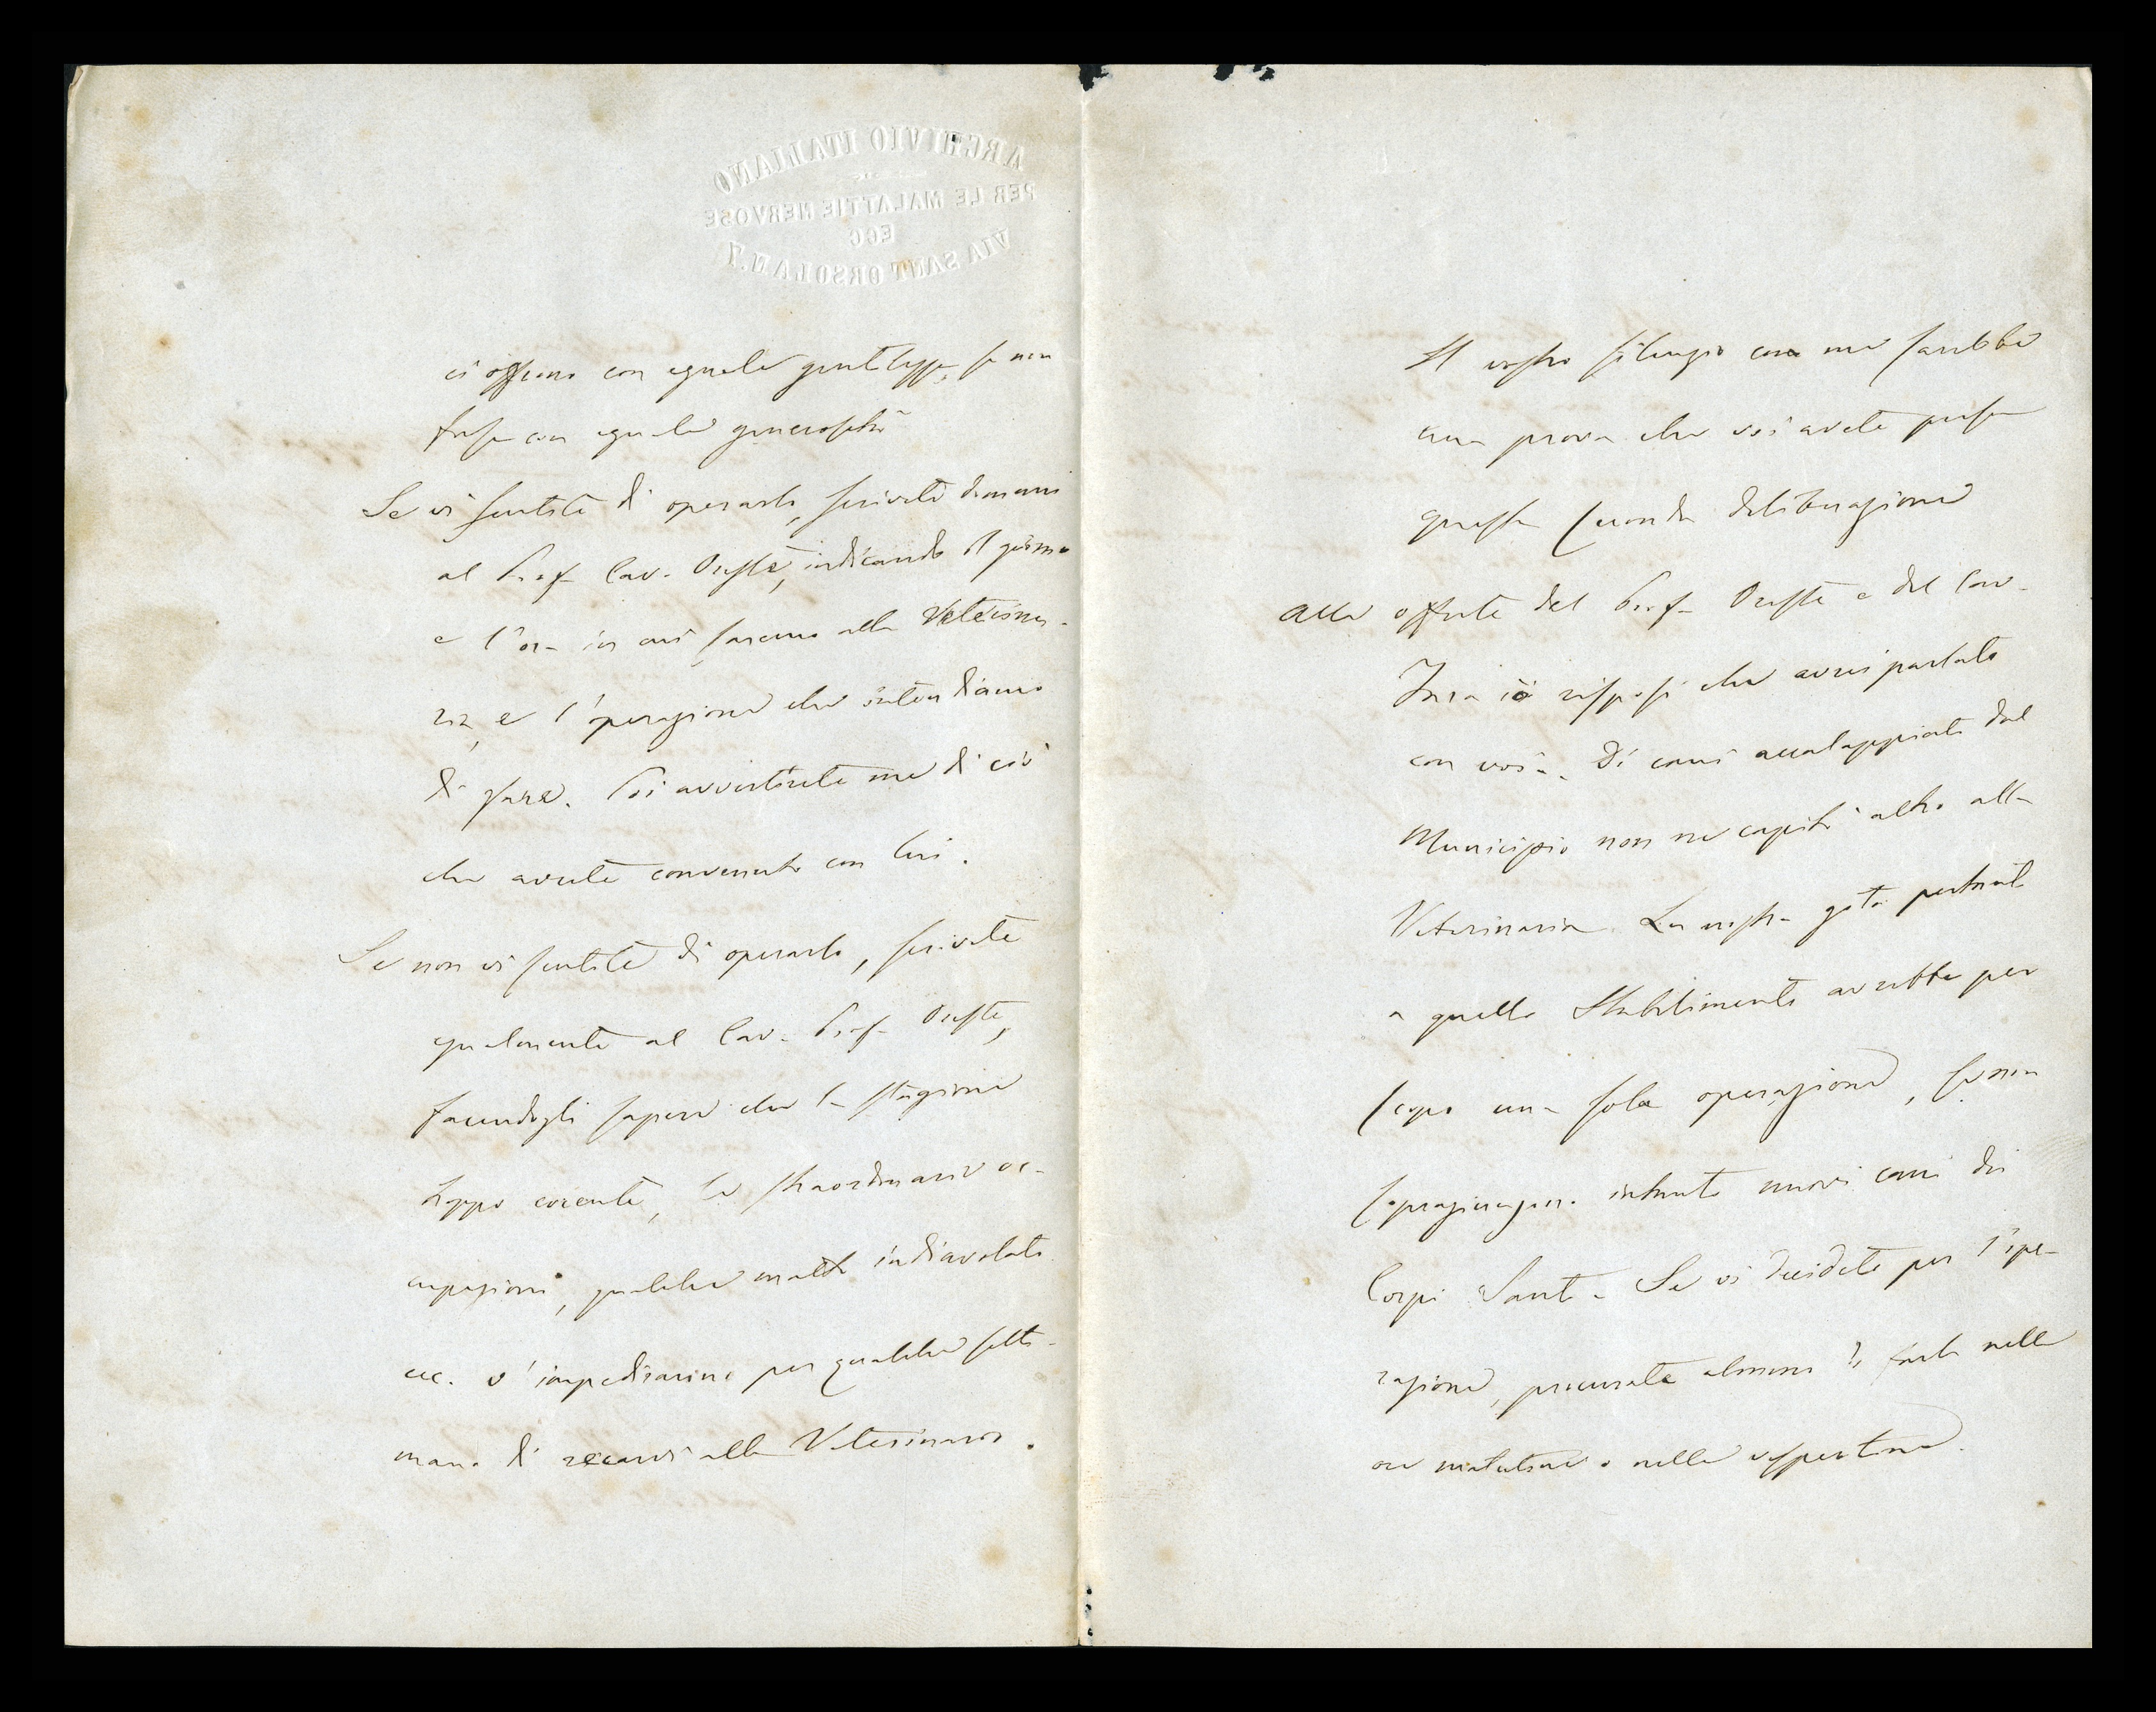 ARCHIVIO ITALIANO
PER LE MALATTIE NERVOSE
ECC
VIA SANT'ORSOLA N. 1
ci offrono con eguale gentilezza, se non
forse con eguale generosità
Se vi sentite di operarlo, scrivete domani
al Prof Cav. Oreste, indicando il giorno
e l'ora in cui saremo alla Veterina-
ria, e l'operazione che intendiamo
di fare. Poi avvertirete me di ciò
che avrete convenuto con lui.
Se non vi sentite di operarlo, scrivete
egualmente al Cav. Prof. Oreste,
facendogli sapere che la stagione
troppo cocente, le straordinarie oc-
cupazioni, qualche matto indiavolato
ecc. v'impediranno per qualche setti-
mana di recarvi alla Veterinaria.
Il vostro silenzio con me sarebbe
una prova che voi avete presa
questa seconda deliberazione
Alle offerte del Prof. Oreste e del Cav.
io risposi che avrei parlato
con voi. Di cani accalappiati dal
Municipio non ne capitò altro alla
Veterinaria. La nostra gita pertanto
a quello Stabilimento avrebbe per
scopo una sola operazione, se non
sopraggiungono intanto nuovi cani dei
Corpi Santi. Se vi decidete per l'ope-
razione, procurate almeno di farla nelle
ore mattutine o nelle vespertine.